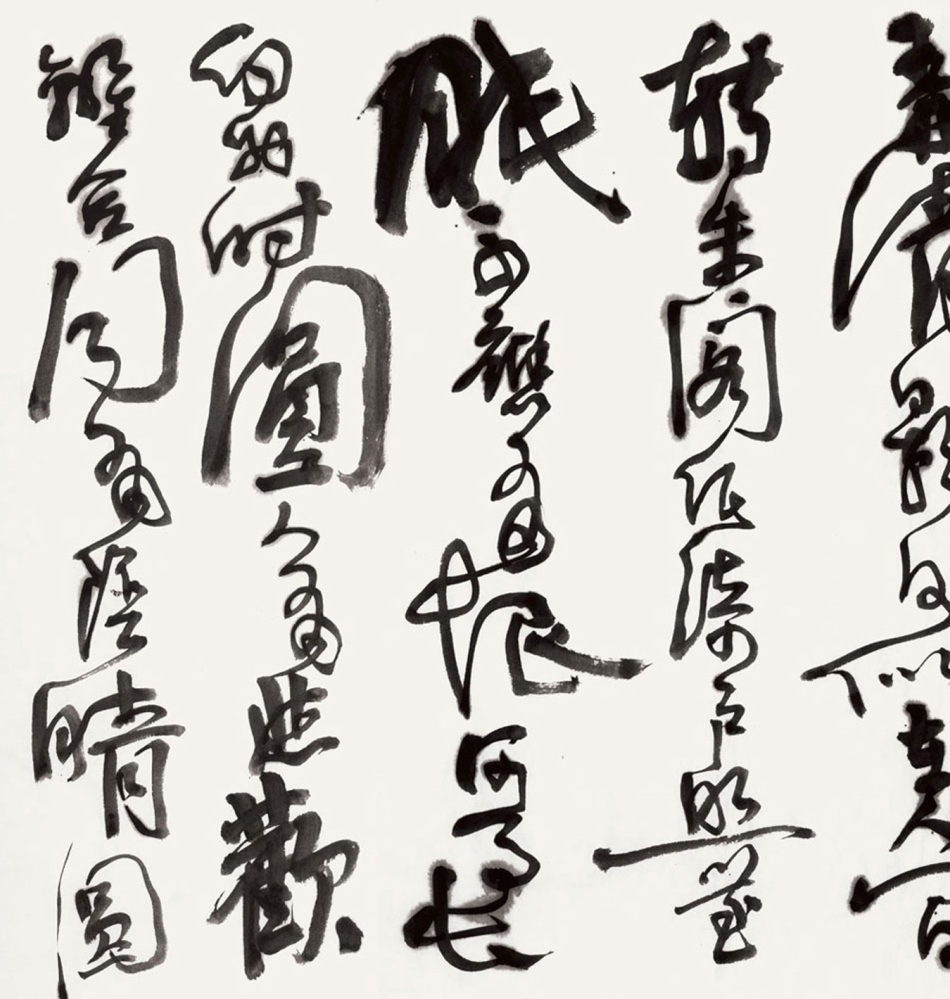 清影何似在人間
轉朱閣低綺戶照無
眠不應有恨何事長
向別時圓人有悲歡
離合月有陰晴圓